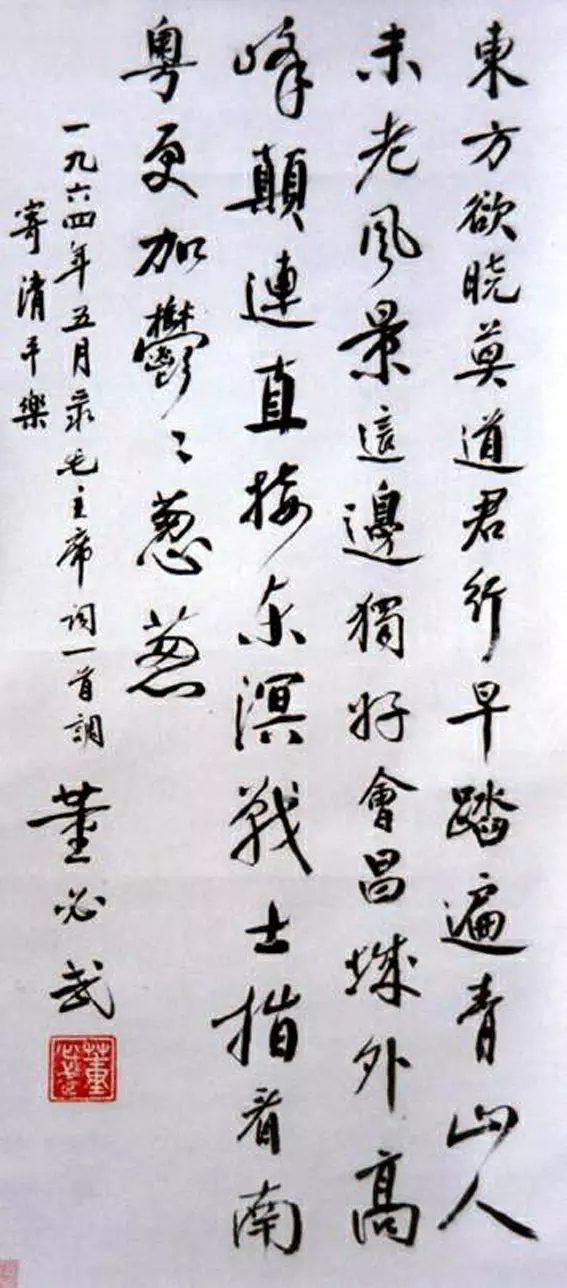 東方欲曉莫道君行早踏遍青山人
未老風景這邊獨好會昌城外高
峰顛連直接东溟戰士指看南
粤更加鬱〻葱葱
一九六四年五月录毛主席词一首調
寄清平樂
董必武
董必武